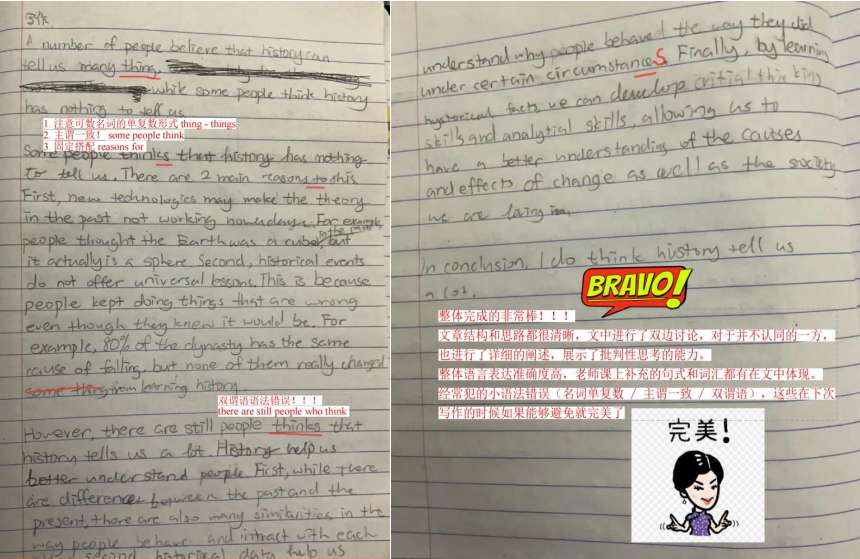 写作
A number of people believe that history can
tell us many thing.
while some people think history
has nothing to tell us
1. 注意可数名词的单复数形式 thing - things
2. 主谓一致！ some people think
3. 固定搭配 reasons for
Some people thinks that history has nothing
to tell us. There are 2 main reasons to this
First, new technologies may make the theory
in the past not working nowadays. For example,
in the past
people thought the Earth was a cube, but
it actually is a sphere. Second, historical events
do not offer universal lessons. This is because
people kept doing things that are wrong
even though they knew it would be. For
example, 80% of the dynasty has the same
cause of falling, but none of them really changed
some thing from learning history.
双谓语语法错误！！！
there are still people who think
However, there are still people thinks that
history tells us a lot. History help us
better understand people First, while there
are differences between the past and the
present, there are also many similarities in the
way people behave and intract with each
second historical data help us
understand why people behaved the way they did
under certain circumstances Finally, by learning
hystorical facts we can develop critical thinking
skills and analytial skills, allowing us to
have a better understanding of the causes
and effects of change as well as the society
we are living in.
In conclusion, I do think history tell us
a lot.
BRAVO!
整体完成的非常棒！！！
文章结构和思路都很清晰，文中进行了双边讨论，对于并不认同的一方，
也进行了详细的阐述，展示了批判性思考的能力。
整体语言表达准确度高，老师课上补充的句式和词汇都有在文中体现。
经常犯的小语法错误（名词单复数 / 主谓一致 / 双谓语），这些在下次
写作的时候如果能够避免就完美了
完美！